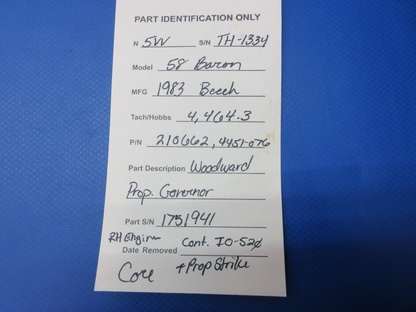 PART IDENTIFICATION ONLY
N 5VV S/N TH-1334
Model 58 Baron
MFG 1983 Beech
Tach/Hobbs 4,464.3
P/N 210662, 4451-076
Part Description Woodward
Prop. Governor
Part S/N 1751941
RH Engine Cont. IO-520
Date Removed
Core + Prop Strike